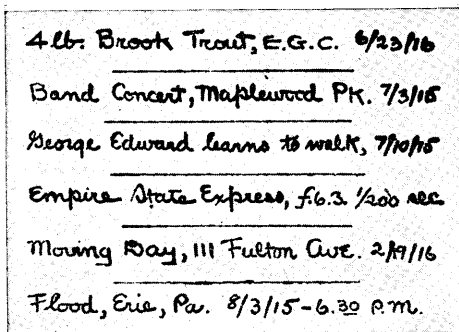 4 lb. Brook Trout, E.G.C. 6/23/16
Band Concert, Maplewood Pk. 7/3/15
George Edward learns to walk, 7/10/15
Empire State Express, f.6.3. 1/200 sec.
Moving Day, 111 Fulton Ave. 2/19/16
Flood, Erie, Pa. 8/3/15-6.30 P.M.